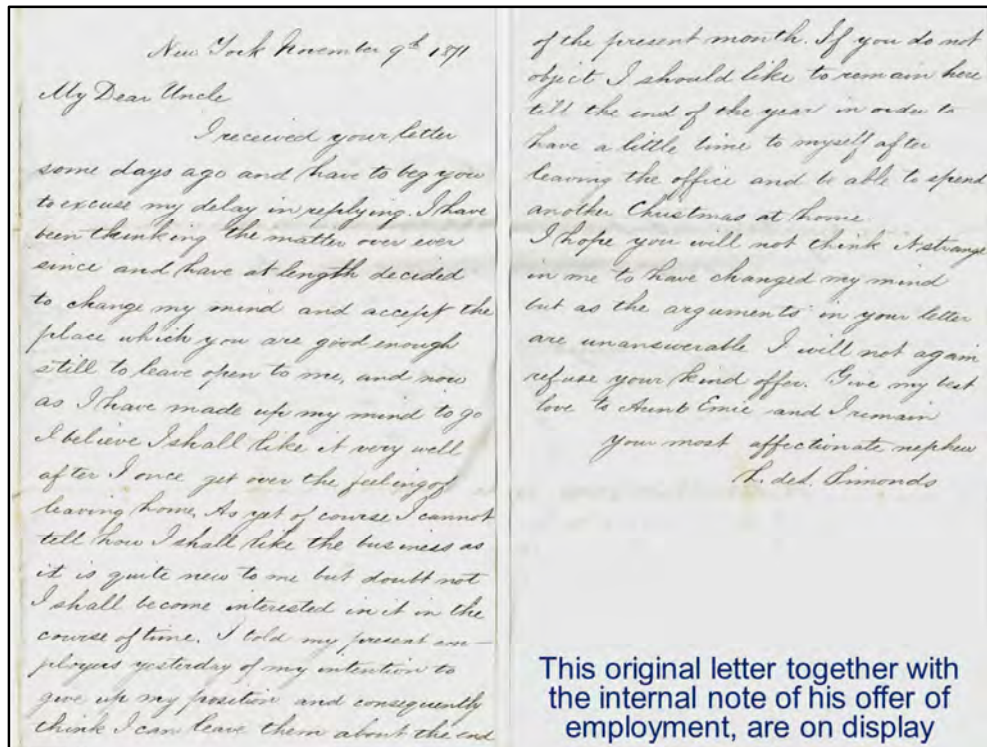 New York November 9th 1871
My Dear Uncle
I received your letter
some days ago and have to beg you
to excuse my delay in replying. I have
been thinking the matter over ever
since and have at length decided
to change my mind and accept the
place which you are good enough
still to leave open to me, and now
as I have made up my mind to go
I believe I shall like it very well
after I once get over the feeling of
leaving home. As yet of course I cannot
tell how I shall like the business as
it is quite new to me but doubt not
I shall become interested in it in the
course of time. I told my present em-
ployers yesterday of my intention to
give up my position and consequently
think I can leave them about the end
of the present month. If you do not
object I should like to remain here
till the end of the year in order to
have a little time to myself after
leaving the office and be able to spend
another Christmas at home.
I hope you will not think it strange
in me to have changed my mind
but as the arguments in your letter
are unanswerable I will not again
refuse your kind offer. Give my best
love to Aunt Emie and I remain
your most affectionate nephew
L. deL. Simonds
This original letter together with
the internal note of his offer of
employment, are on display